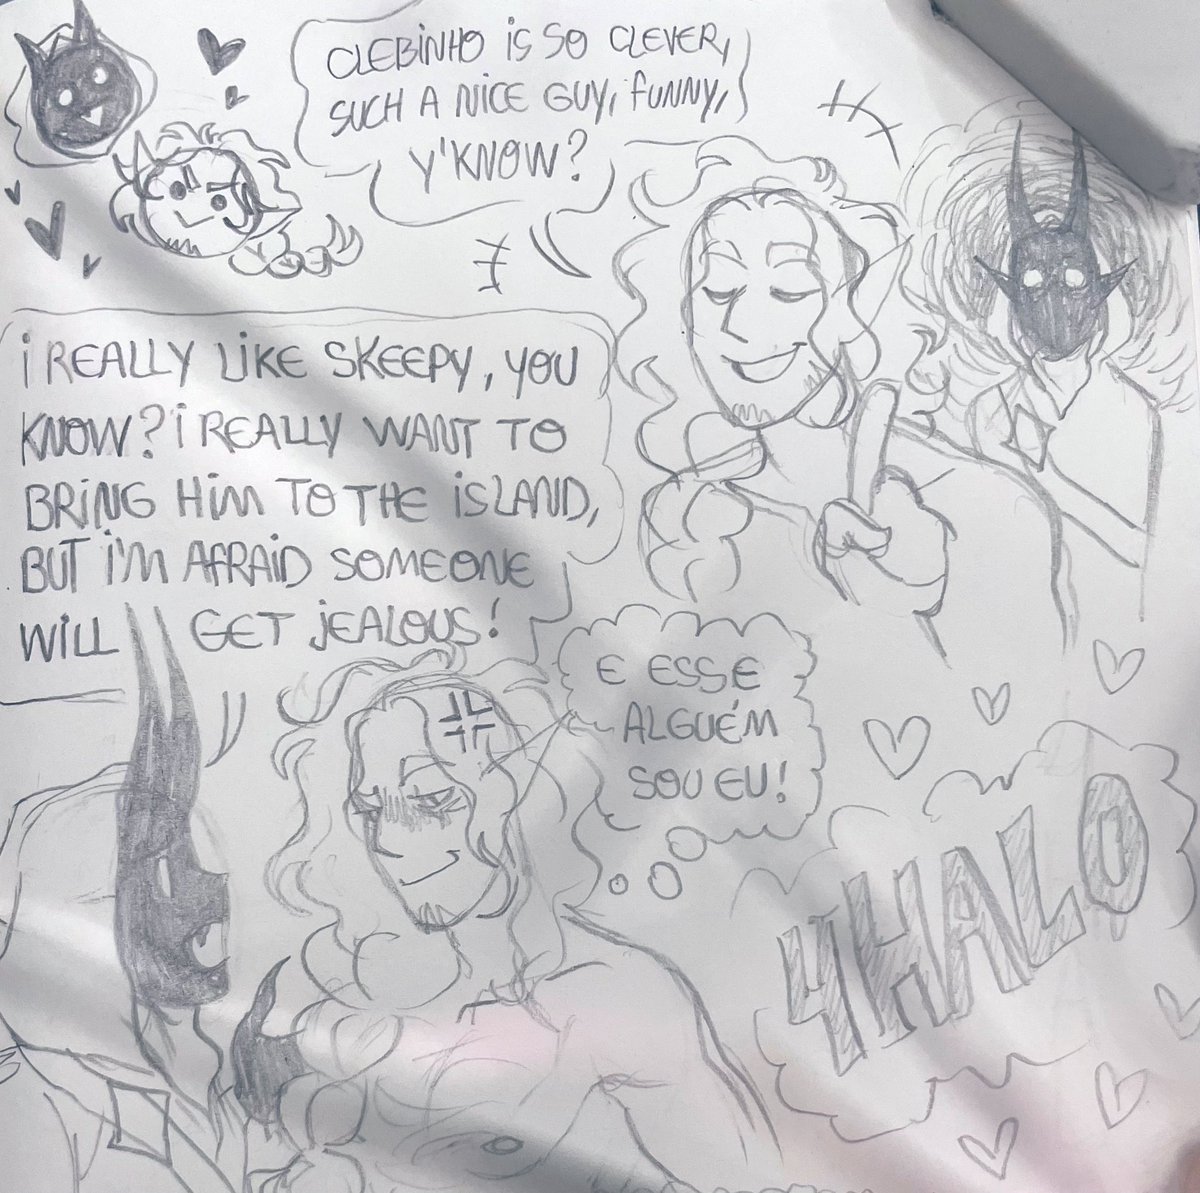 CLEBINHO iS SO CLEVER,
SUCH A NICE GUY, FUNNY,
Y'KNOW?
i REALLY LIKE SKEEPY, YOU
KNOW? i REALLY WANT TO
BRING HIM TO THE iSLAND,
BUT i'M AFRAID SOMEONE
WILL GET JEALOUS!
E ESSE
ALGUÉM
SOU EU!
4HALO